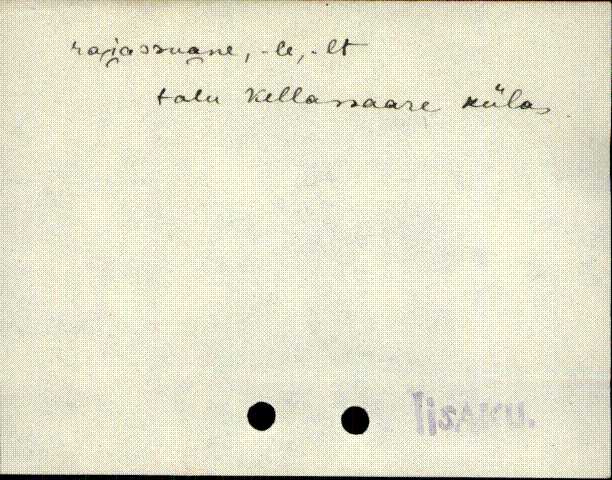 rajassuane, -le, -lt
talu Kellassaare külas
IisAKU.